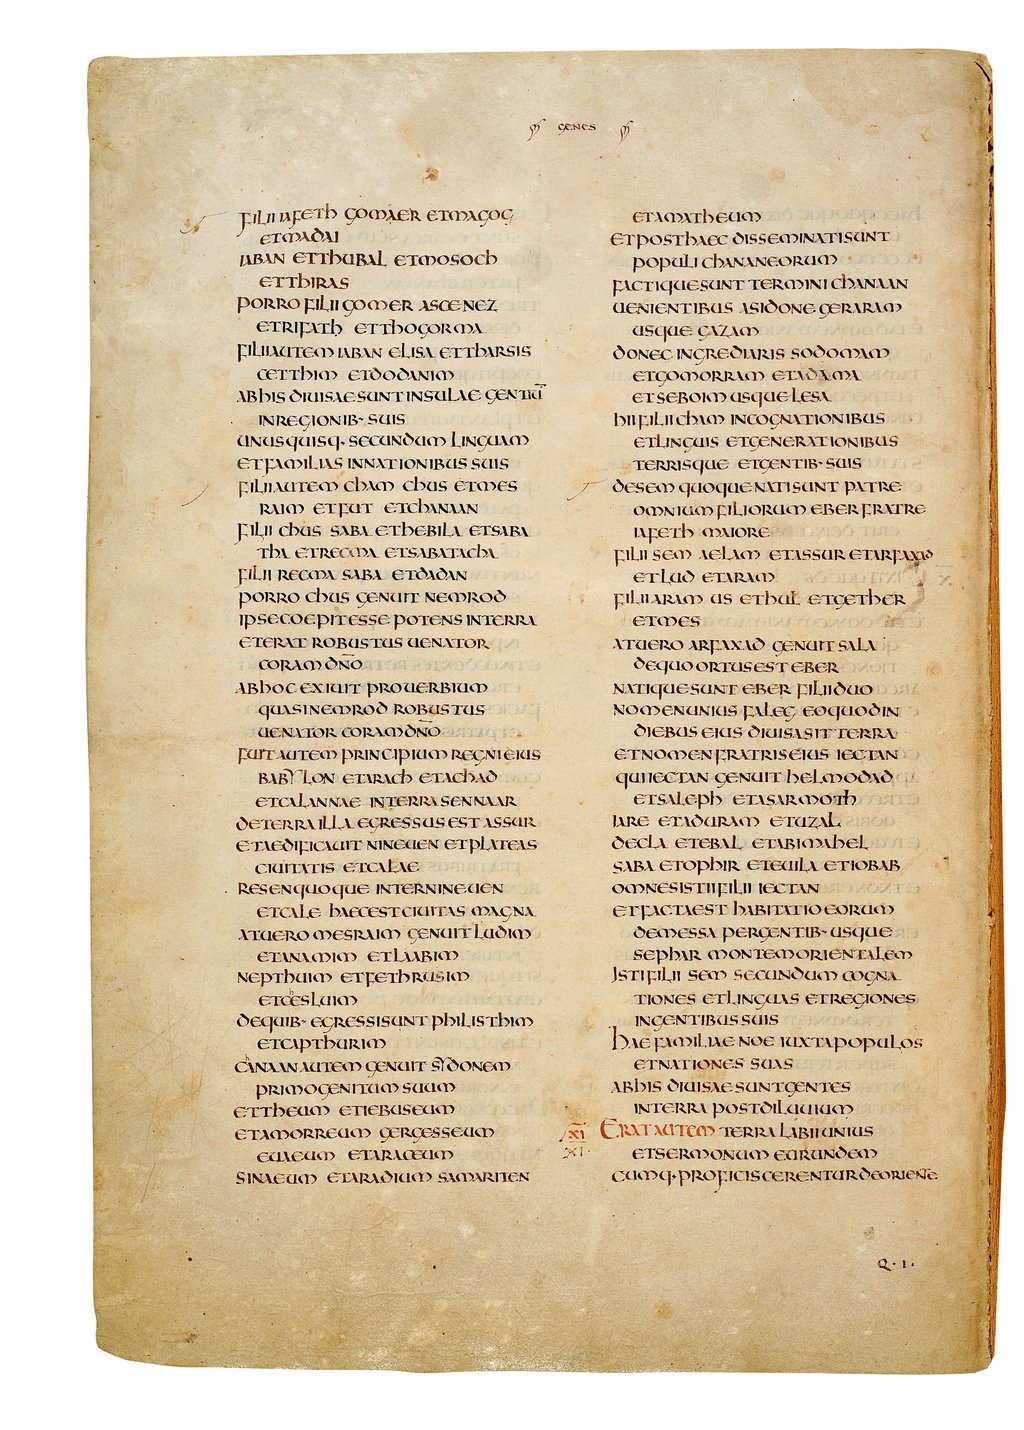 GENES
FILII IAFETH GOMAER ETMAGOG
ETMADAI
IABAN ETTHUBAL ETMOSOCH
ETTHIRAS
PORRO FILII GOMER ASCENEZ
ETRIFATH ETTHOGORMA
FILIIAUTEM IABAN ELISA ETTHARSIS
CETTHIM ETDODANIM
ABHIS DIUISAESUNT INSULAE GENTIŪ
INREGIONIB· SUIS
UNUSQUISQ· SECUNDUM LINGUAM
ETFAMILIAS INNATIONIBUS SUIS
FILIIAUTEM CHAM CHUS ETMES
RAIM ETFUT ETCHANAAN
FILII CHUS SABA ETHEBILA ETSABA
THA ETREGMA ETSABATACHA
FILII REGMA SABA ETDADAN
PORRO CHUS GENUIT NEMROD
IPSECOEPITESSE POTENS INTERRA
ETERAT ROBUSTUS UENATOR
CORAM DN̄O
ABHOC EXIUIT PROUERBIUM
QUASINEMROD ROBUSTUS
UENATOR CORAM DN̄O
FUITAUTEM PRINCIPIUM REGNI EIUS
BABYLON ETARACH ETACHAD
ETCALANNAE INTERRA SENNAAR
DETERRAILLA EGRESSUS EST ASSUR
ETAEDIFICAUIT NINEUEN ETPLATEAS
CIUITATIS ETCALAE
RESENQUOQUE INTERNINEUEN
ETCALE HAECESTCIUITAS MAGNA
ATUERO MESRAIM GENUIT LUDIM
ETANAMIM ETLAABIM
NEPTHUIM ETFETHRUSIM
ETCESLUIM
DEQUIB· EGRESSISUNT PHILISTHIM
ETCAPTHURIM
CANAANAUTEM GENUIT SIDONEM
PRIMOGENITUM SUUM
ETTHEUM ETIEBUSEUM
ETAMORREUM GERGESSEUM
EUAEUM ETARACEUM
SINAEUM ETARADIUM SAMARITEN
ETAMATHEUM
ETPOSTHAEC DISSEMINATISUNT
POPULI CHANANEORUM
FACTIQUESUNT TERMINI CHANAAN
UENIENTIBUS ASIDONE GERARAM
USQUE GAZAM
DONEC INGREDIARIS SODOMAM
ETGOMORRAM ETADAMA
ETSEBOIM USQUE LESA
HII FILII CHAM INCOGNATIONIBUS
ETLINGUIS ETGENERATIONIBUS
TERRISQUE ETGENTIB· SUIS
DESEM QUOQUE NATISUNT PATRE
OMNIUM FILIORUM EBER FRATRE
IAFETH MAIORE
FILII SEM AELAM ETASSUR ETARFAXAD
ETLUD ETARAM
FILIIARAM US ETHUL ETGETHER
ETMES
ATUERO ARFAXAD GENUIT SALA
DEQUOORTUSEST EBER
NATIQUESUNT EBER FILIIDUO
NOMENUNIUS FALEG EOQUODIN
DIEBUS EIUS DIUISASIT TERRA
ETNOMEN FRATRIS EIUS IECTAN
QUIIECTAN GENUIT HELMODAD
ETSALEPH ETASARMOTH
IARE ETADURAM ETUZAL
DECLA ETEBAL ETABIMAHEL
SABA ETOPHIR ETEUILA ETIOBAB
OMNESISTI FILII IECTAN
ETFACTAEST HABITATIO EORUM
DEMESSA PERGENTIB· USQUE
SEPHAR MONTEMORIENTALEM
ISTI FILII SEM SECUNDUM COGNA
TIONES ETLINGUAS ETREGIONES
INGENTIBUS SUIS
HAE FAMILIAE NOE IUXTAPOPULOS
ETNATIONES SUAS
ABHIS DIUISAESUNTGENTES
INTERRA POSTDILUUIUM
XI ERATAUTEM TERRA LABIIUNIUS
XI· ETSERMONUM EORUNDEM
CUMQ· PROFICISCERENTURDEORIENTE
Q·I·